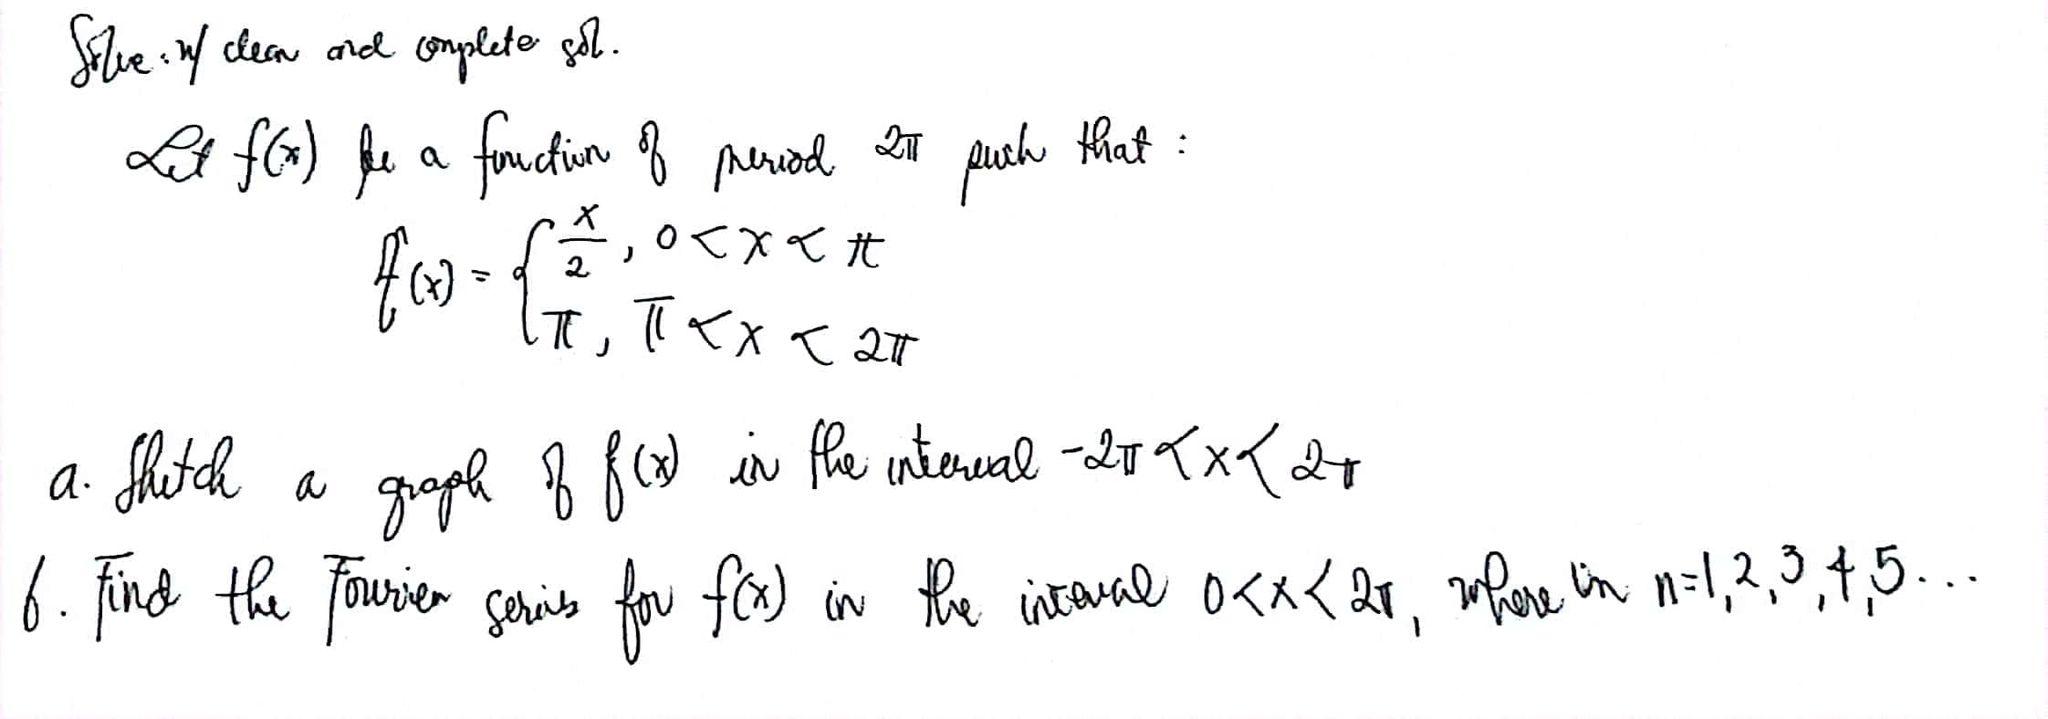 Solve: w/ clean and complete sol.
Let f(x) be a function of period 2π such that :
f(x) = { x/2 , 0 < x < π
π , π < x < 2π
a. Sketch a graph of f(x) in the interval -2π < x < 2π
b. Find the Fourier series for f(x) in the interval 0 < x < 2π, where in n=1,2,3,4,5...